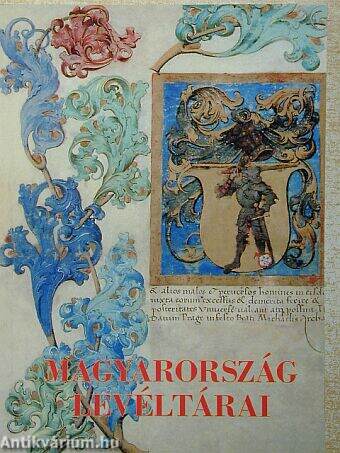 & alios malos & perversos homines in
iuxta eorum excessus & demerita
posteritates
Datum Prage in festo Beati Michaelis
MAGYARORSZÁG
LEVÉLTÁRAI
Antikvárium.hu